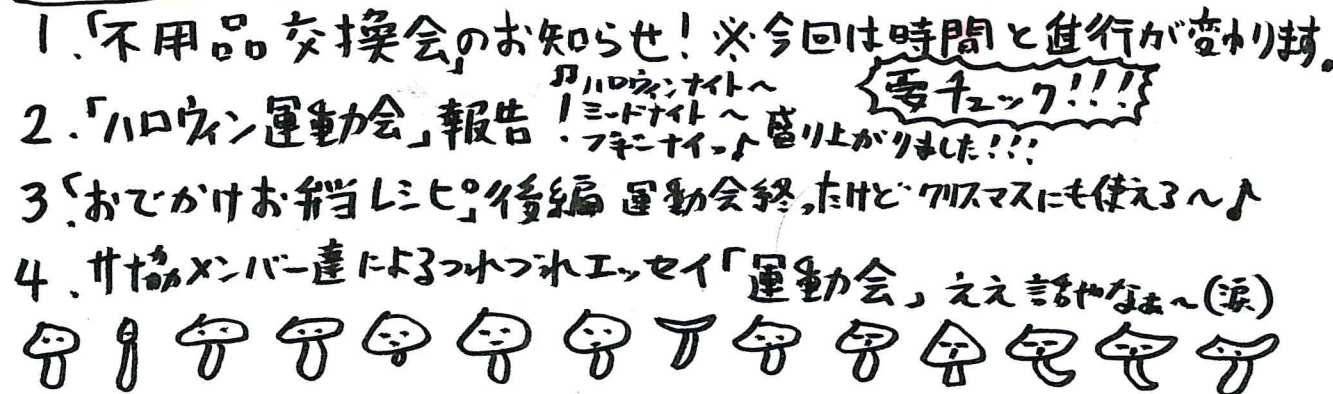 1.「不用品交換会」のお知らせ!※今回は時間と進行が変わります。
要チェック!!!
2.「ハロウィン運動会」報告
♫ハロウィンナイト〜
!ミッドナイト〜
盛り上がりました!!!
3「おでかけお弁当レシピ」後編 運動会終ったけどクリスマスにも使える〜♪
4、サ協メンバー達によるつれづれエッセイ「運動会」ええ話やなぁ〜(涙)